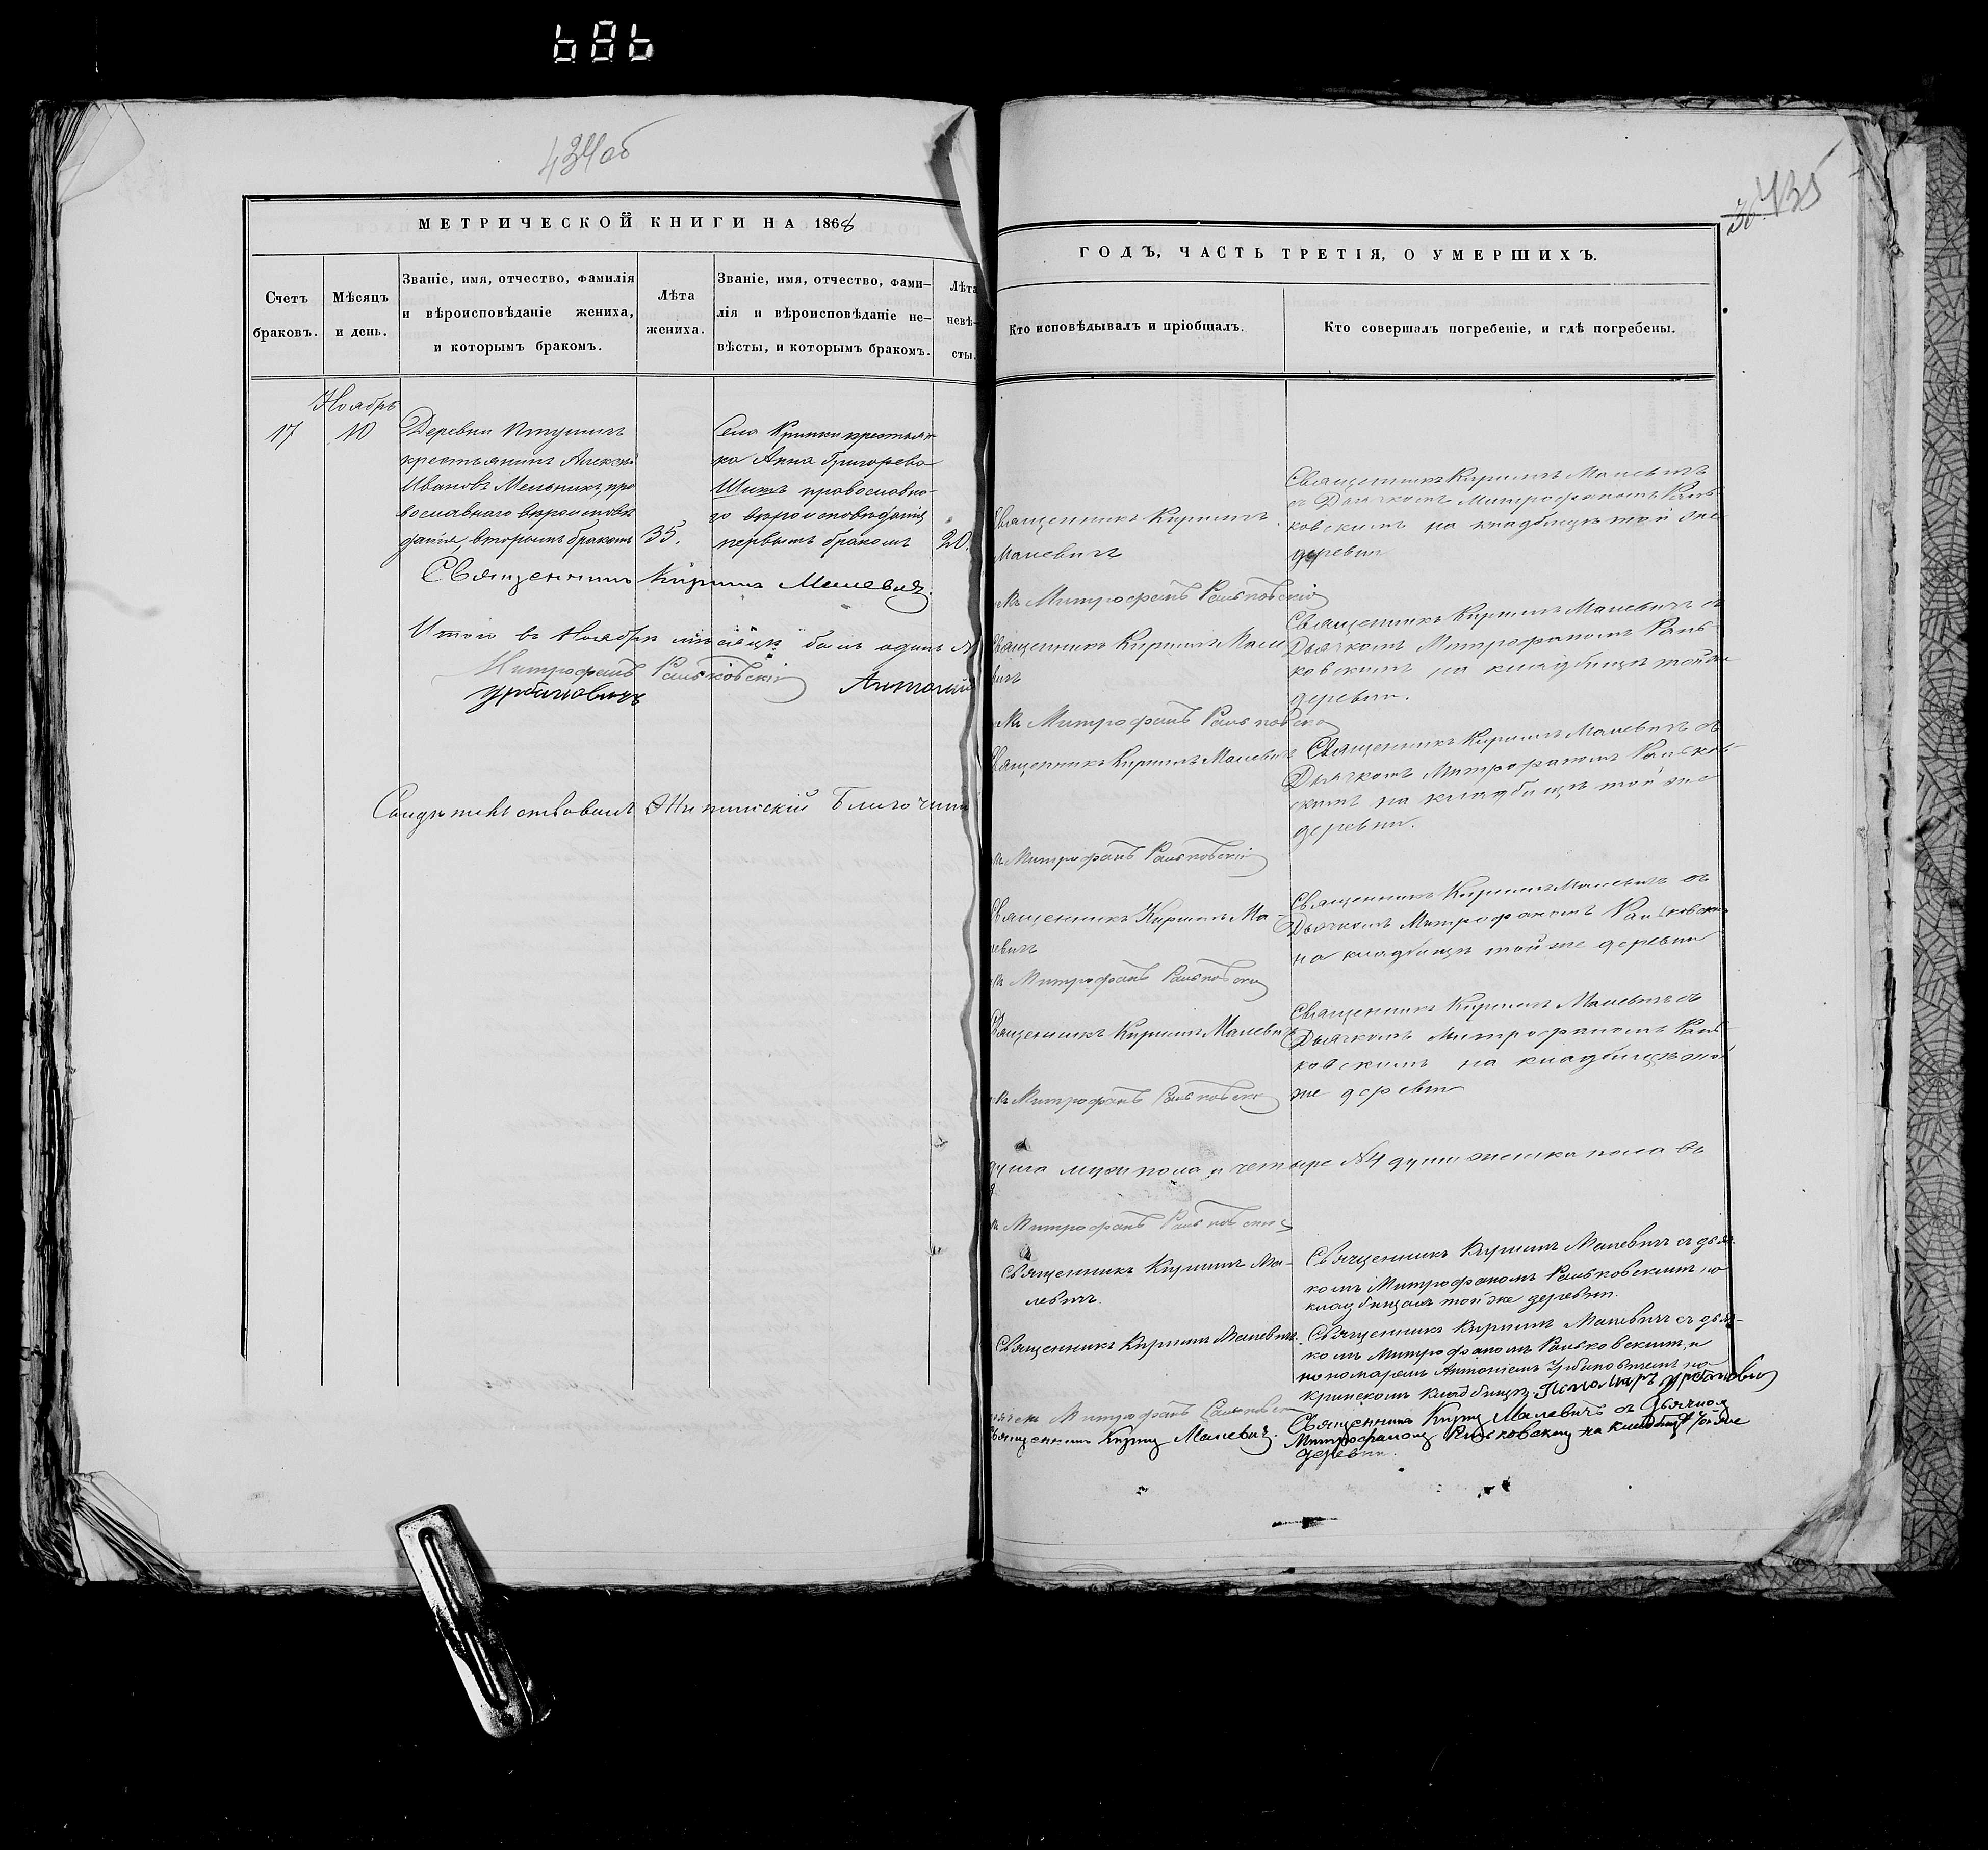 686
434об
МЕТРИЧЕСКОЙ КНИГИ НА 1868
Счетъ браковъ.
Мѣсяцъ и день.
Званіе, имя, отчество, фамилія
и вѣроисповѣданіе жениха,
и которымъ бракомъ.
Лѣта жениха.
Званіе, имя, отчество, фами-
лія и вѣроисповѣданіе не-
вѣсты, и которымъ бракомъ.
Лѣта невѣ-
сты.
Ноябрь
17
10
Деревни
крестьянинъ Алексѣй
Ивановъ Мельникъ, пра
вославнаго вѣроисповѣ
данія, вторымъ бракомъ
35.
Села Кринки крестьян
ка Анна Григорьева
Шитъ православна-
го вѣроисповѣданія
первымъ бракомъ
20.
Священникъ Кирилъ Малевичъ.
Итого въ Ноябрѣ мѣсяцѣ былъ одинъ
Митрофанъ Раньковскій Антоній
Урбановичъ
Свидѣтельствовалъ Благочин
435
ГОДЪ, ЧАСТЬ ТРЕТІЯ, О УМЕРШИХЪ.
Кто исповѣдывалъ и пріобщалъ.
Кто совершалъ погребеніе, и гдѣ погребены.
Священникъ Кирилъ
Малевичъ
Священникъ Кирилъ Малевичъ
съ Дьячкомъ Митрофаномъ Рань-
ковскимъ на кладбищѣ той же
деревни
къ Митрофанъ Раньковскій
Священникъ Кирилъ Мале
вичъ
Священникъ Кирилъ Малевичъ съ
Дьячкомъ Митрофаномъ Рань-
ковскимъ на кладбищѣ той же
деревни.
къ Митрофанъ Раньковскій
Священникъ Кирилъ Малевичъ
Священникъ Кирилъ Малевичъ съ
Дьячкомъ Митрофаномъ Раньков-
скимъ на кладбищѣ той же
деревни.
къ Митрофанъ Раньковскій
Священникъ Кирилъ Ма-
левичъ
Священникъ Кирилъ Малевичъ съ
Дьячкомъ Митрофаномъ Раньковскимъ
на кладбищѣ той же деревни
къ Митрофанъ Раньковскій
Священникъ Кирилъ Малевичъ
Священникъ Кирилъ Малевичъ съ
Дьячкомъ Митрофаномъ Рань-
ковскимъ на кладбищѣ той
же деревни
къ Митрофанъ Раньковскій
душа муж пола и четыре №4 души женска пола въ
къ Митрофанъ Раньковскій
Священникъ Кирилъ Ма-
левичъ.
Священникъ Кирилъ Малевичъ съ дьяч
комъ Митрофаномъ Раньковскимъ, на
кладбищѣ той же деревни.
Священникъ Кирилъ Малевичъ.
Священникъ Кирилъ Малевичъ съ дьяч-
комъ Митрофаномъ Раньковскимъ, и
пономаремъ Антоніемъ Урбановичемъ на
кринскомъ кладбищѣ. Пономарь Урбановичъ
Дьячекъ Митрофанъ Раньковскій
Священникъ Кирилъ Малевичъ.
Священникъ Кирилъ Малевичъ съ Дьячкомъ
Митрофаномъ Раньковскимъ на кладбищѣ той же
деревни.